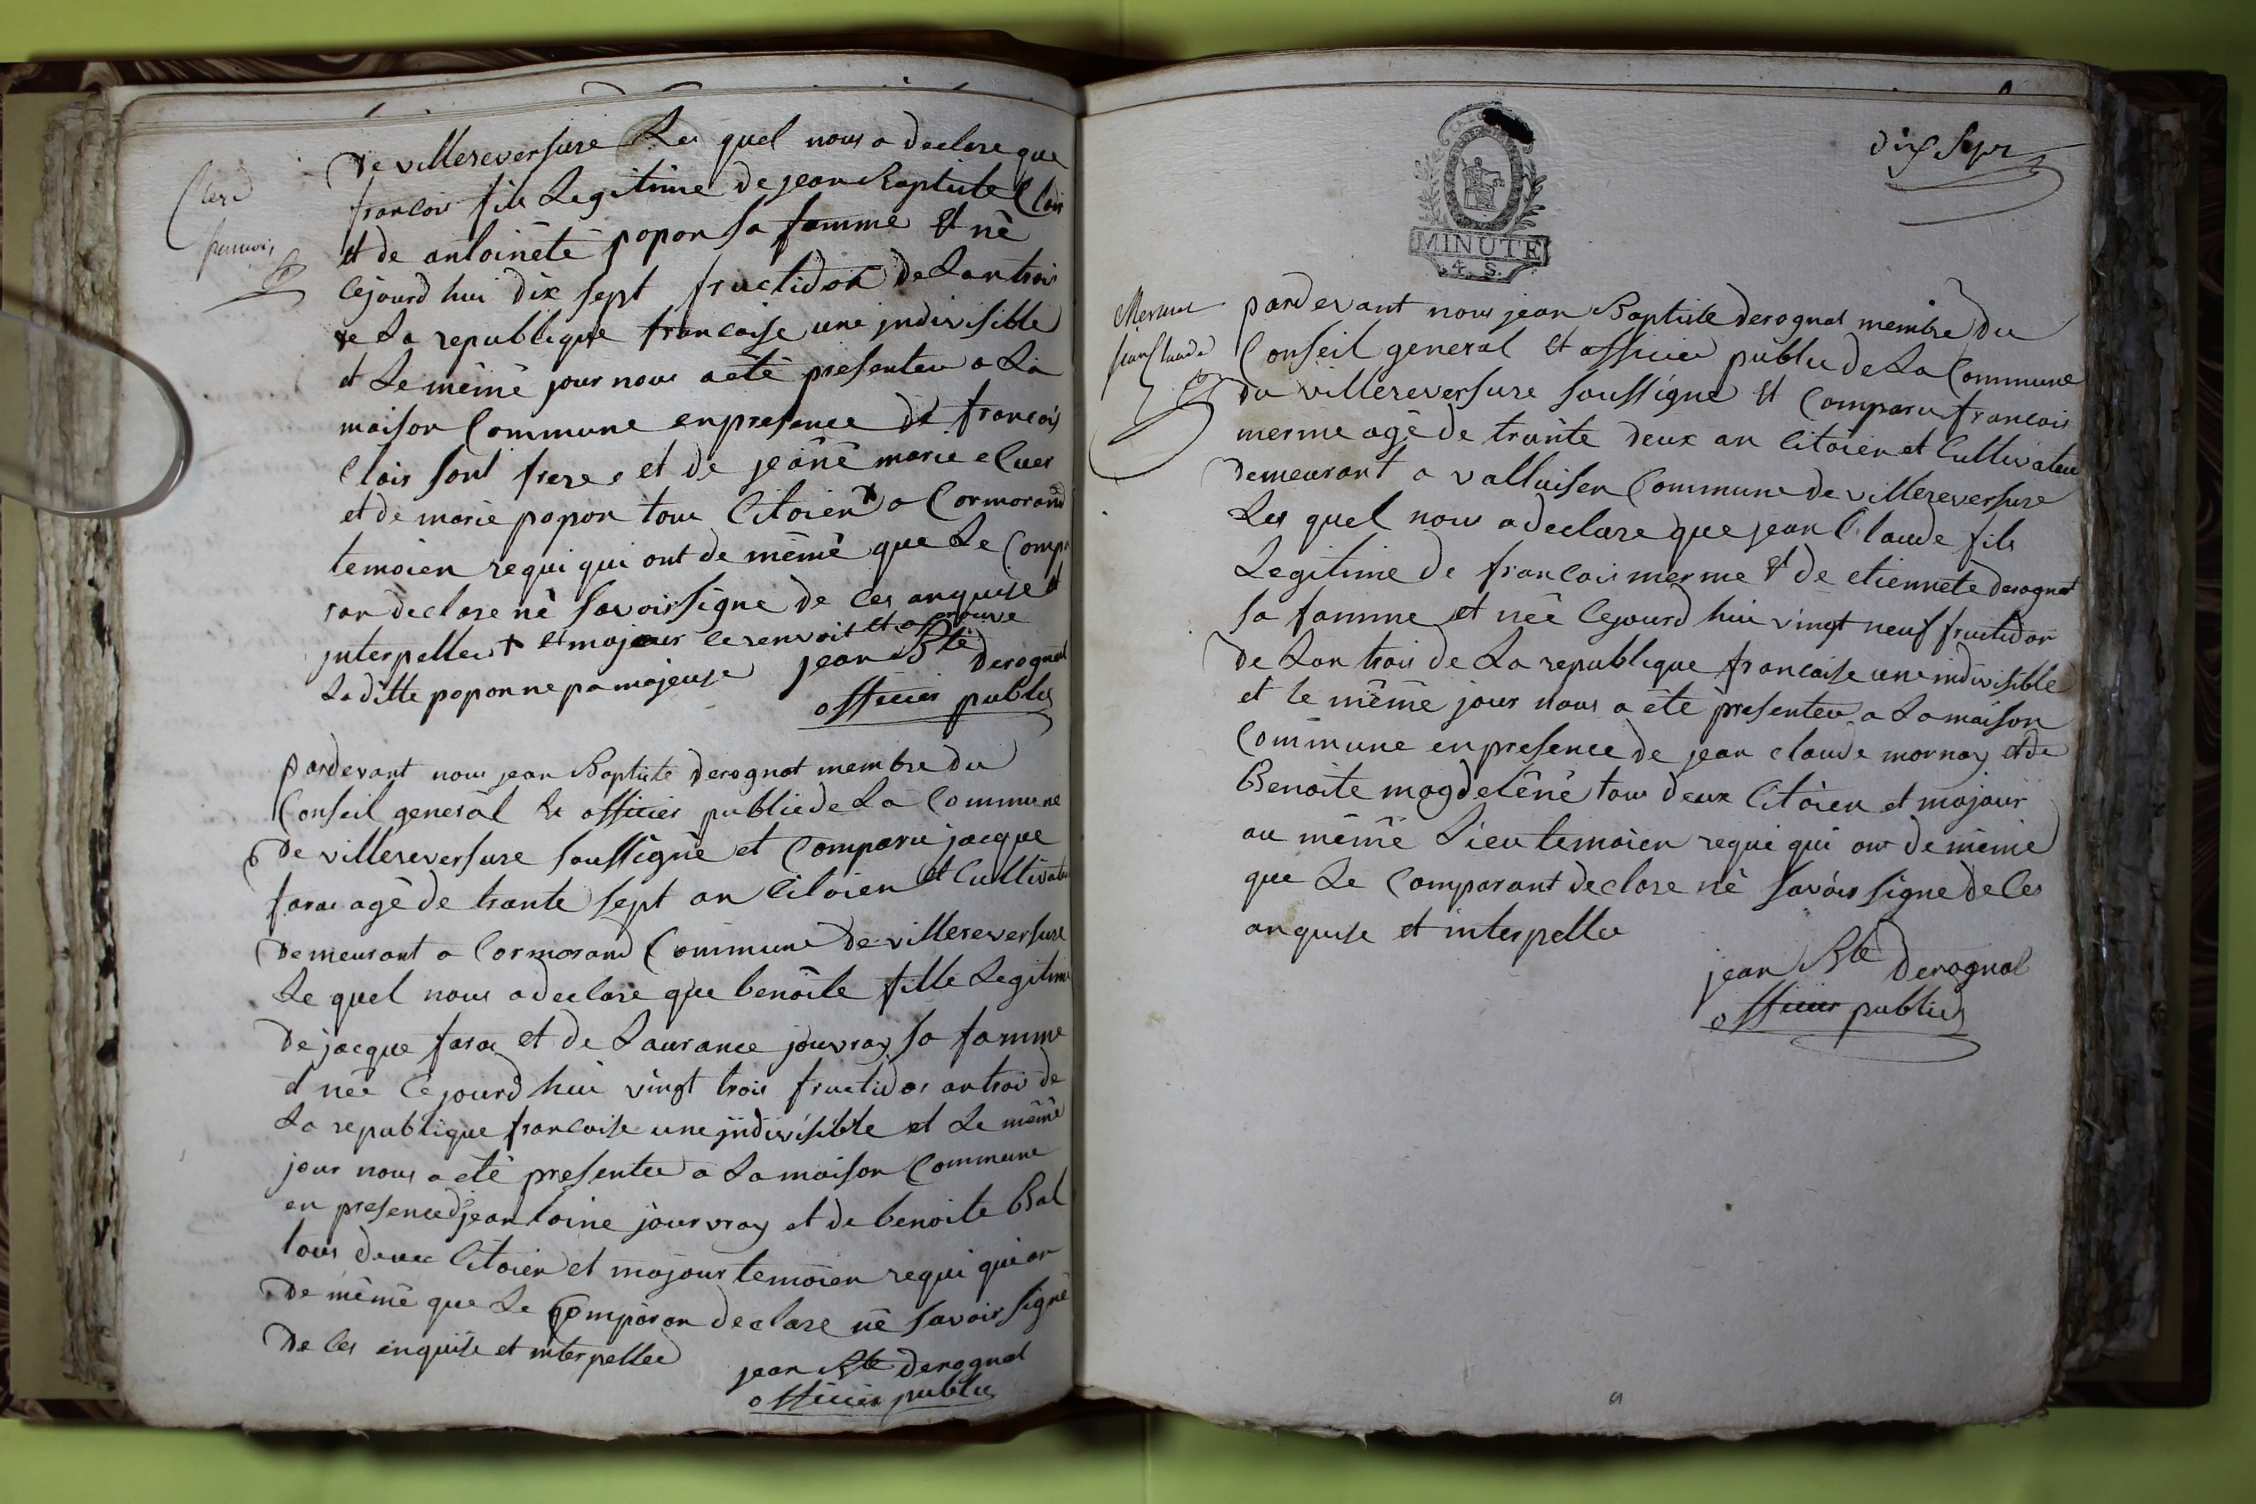 de villereversure Les quel nous a declare que
francois fils Legitime de jean Baptiste Clair
et de antoinete popon sa famme et nè
Cejourd hui dix sept fructidor de Lan trois
de La republique francaise une jndivisible
et Le même jour nous a etè presenteu a La
maison Commune en presence de francois
Clair sont frere et de jeane marie
et de marie popon tous Citoien + a Cormorand
temoien requi qui ont de même que Le Compa
ran declare nè savoir signe de Ces anquise et
jnterpelleu + et majeur ce renvoit et aprouve
La ditte popon ne pa majeure jean Bte derognat
officier public
Clerc
francois
pardevant nous jean Baptiste derognat membre du
Conseil general et officier public de La Commune
de villereversure soussignè et Comparu jacque
farae agè de trante sept an Citoien et Cultivateu
demeurant a Cormorand Commune de villereversure
Le quel nous a declare que benoite fille Legitime
de jacque farae et de Laurance jouvray sa famme
et nee Cejourd hui vingt trois fructidor an trois de
La republique francaise une jndivisible et Le même
jour nous a etè presenteu a La maison Commune
en presence d'jean toine jourvray et de benoite Bal
tous deux Citoien et majour temoien requi qui on
de même que Le Comparan declare nè savoir signè
de Ces enquise et interpelleu
jean Bte derognat
officier public
dix sept
MINUTE
4. S.
Merme
jean Claude
pardevant nous jean Baptiste derognat membre du
Conseil general et officier public de La Commune
du villereversure soussigne et Comparu francois
merme agè de trante deux an Citoien et Cultivateu
demeurant a valluisen Commune de villereversure
Les quel nous a declare que jean Claude fils
Legitime de francois merme et de etiennete derognat
sa famme et nèe Cejourd hui vingt neuf fructidor
de Lan trois de La republique francaise une indivisible
et le même jour nous a etè presenteu a La maison
Commune en presence de jean claude mornay et de
Benoite magdelênè tous deux Citoien et majour
au même Lieu temoien requi qui on de même
que Le Comparant declare nè savoir signe de Ces
anquise et interpelleu
jean Bte derognat
officier public